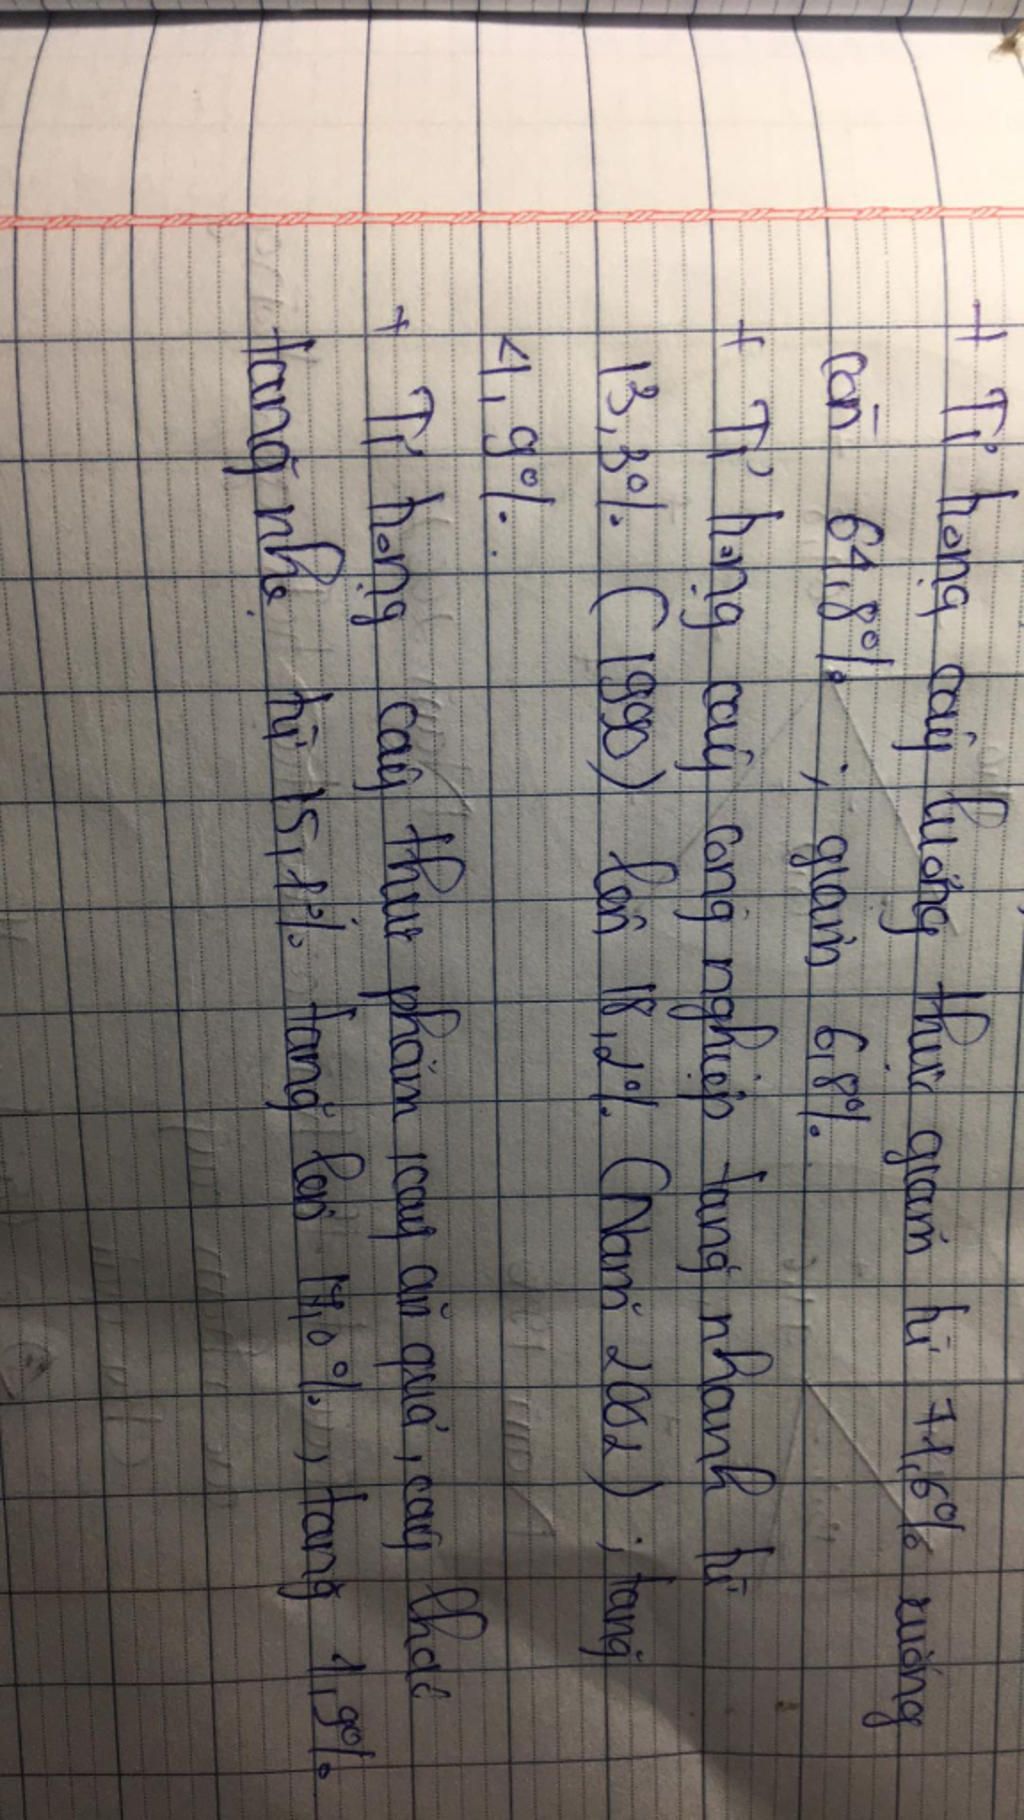 + Tỉ trọng cây lương thực giảm từ 71,6% xuống
còn 64,8% ; giảm 6,8%.
+ Tỉ trọng cây công nghiệp tăng nhanh từ
13,3% (1990) lên 18,2% (Năm 2002) ; tăng
4,9%.
+ Tỉ trọng cây thực phẩm, cây ăn quả, cây khác
tăng nhẹ từ 15,1% tăng lên 17,0%, tăng 1,9%.